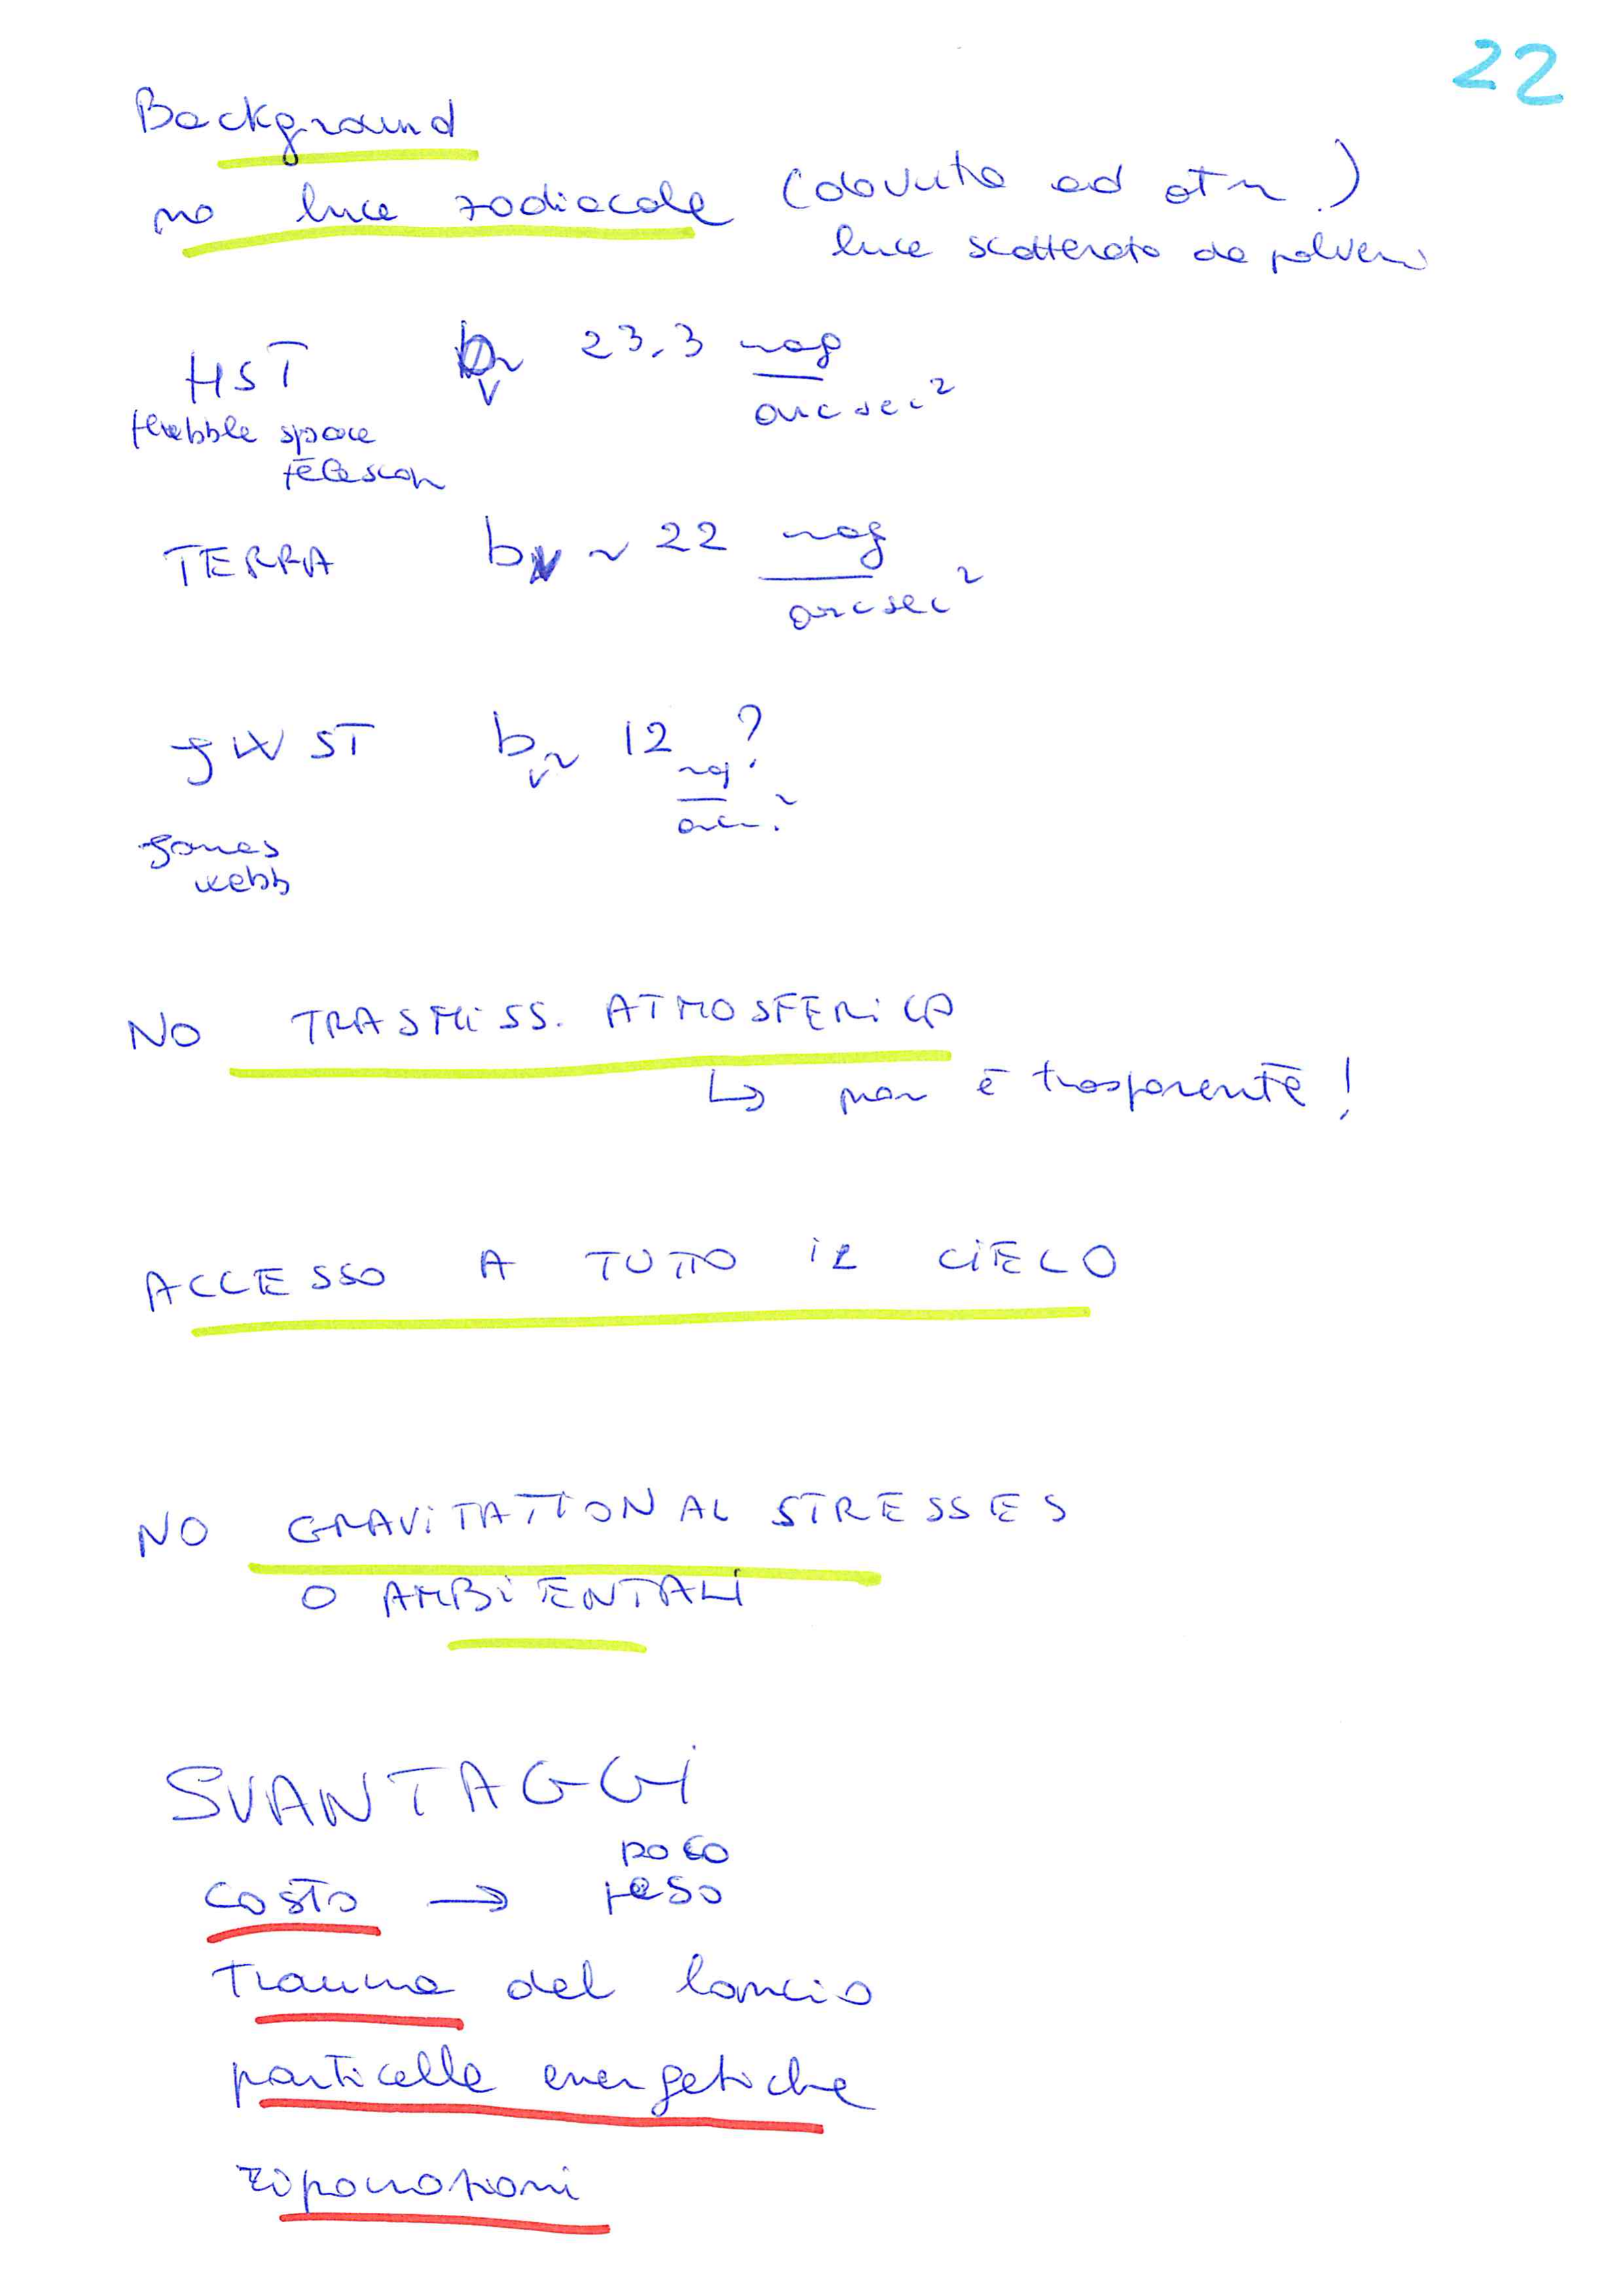 22
Background
no luce zodiacale (dovuta ad atm.)
luce scatterata da polveri
HST b_V ~ 23.3 mag/arcsec²
Hubble space
telescop
TERRA b_V ~ 22 mag/arcsec²
JWST b_V ~ 12 mag/arc² ?
James
webb
NO TRASMISS. ATMOSFERICA
↳ non è trasparente!
ACCESSO A TUTTO IL CIELO
NO GRAVITATIONAL STRESSES
O AMBIENTALI
SVANTAGGI
costo → poco
peso
Trauma del lancio
particelle energetiche
riparazioni